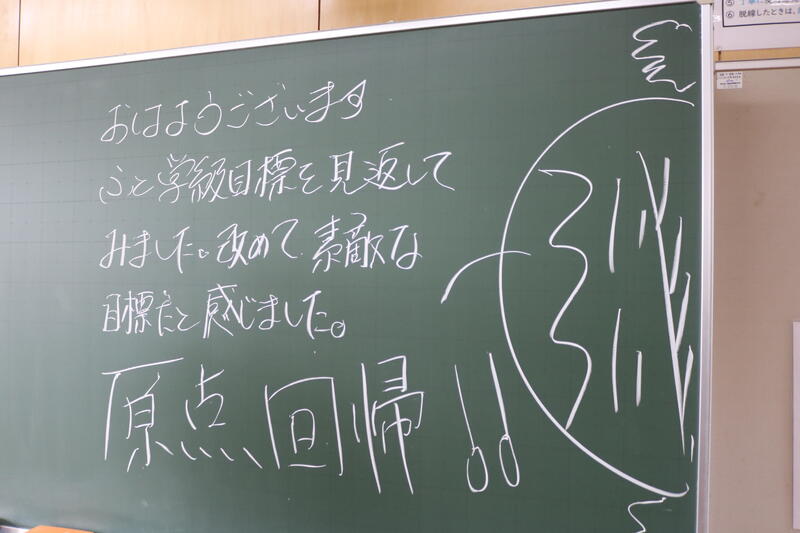 おはようございます
ふと学級目標を見返して
みました。改めて素敵な
目標だと感じました。
原点回帰!!
⑥ 脱線したときは、